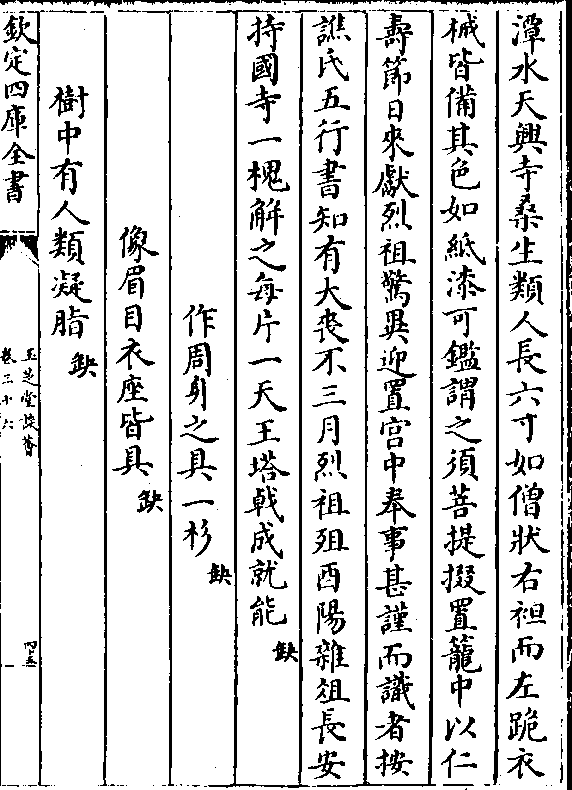 潭水天興寺桑生類人長六寸如僧狀右袒而左跪衣
祴皆備其色如紙漆可鑑謂之須菩提掇置籠中以仁
壽節日來獻烈祖驚異迎置宮中奉事甚謹而識者按
譙氏五行書知有大丧不三月烈祖殂酉陽雜俎長安
持國寺一槐解之每片一天王塔戟成就能缺
作周身之具一杉缺
像眉目衣座皆具缺
樹中有人類凝脂缺
欽定四庫全書
玉芝堂談薈
卷三十六
四五